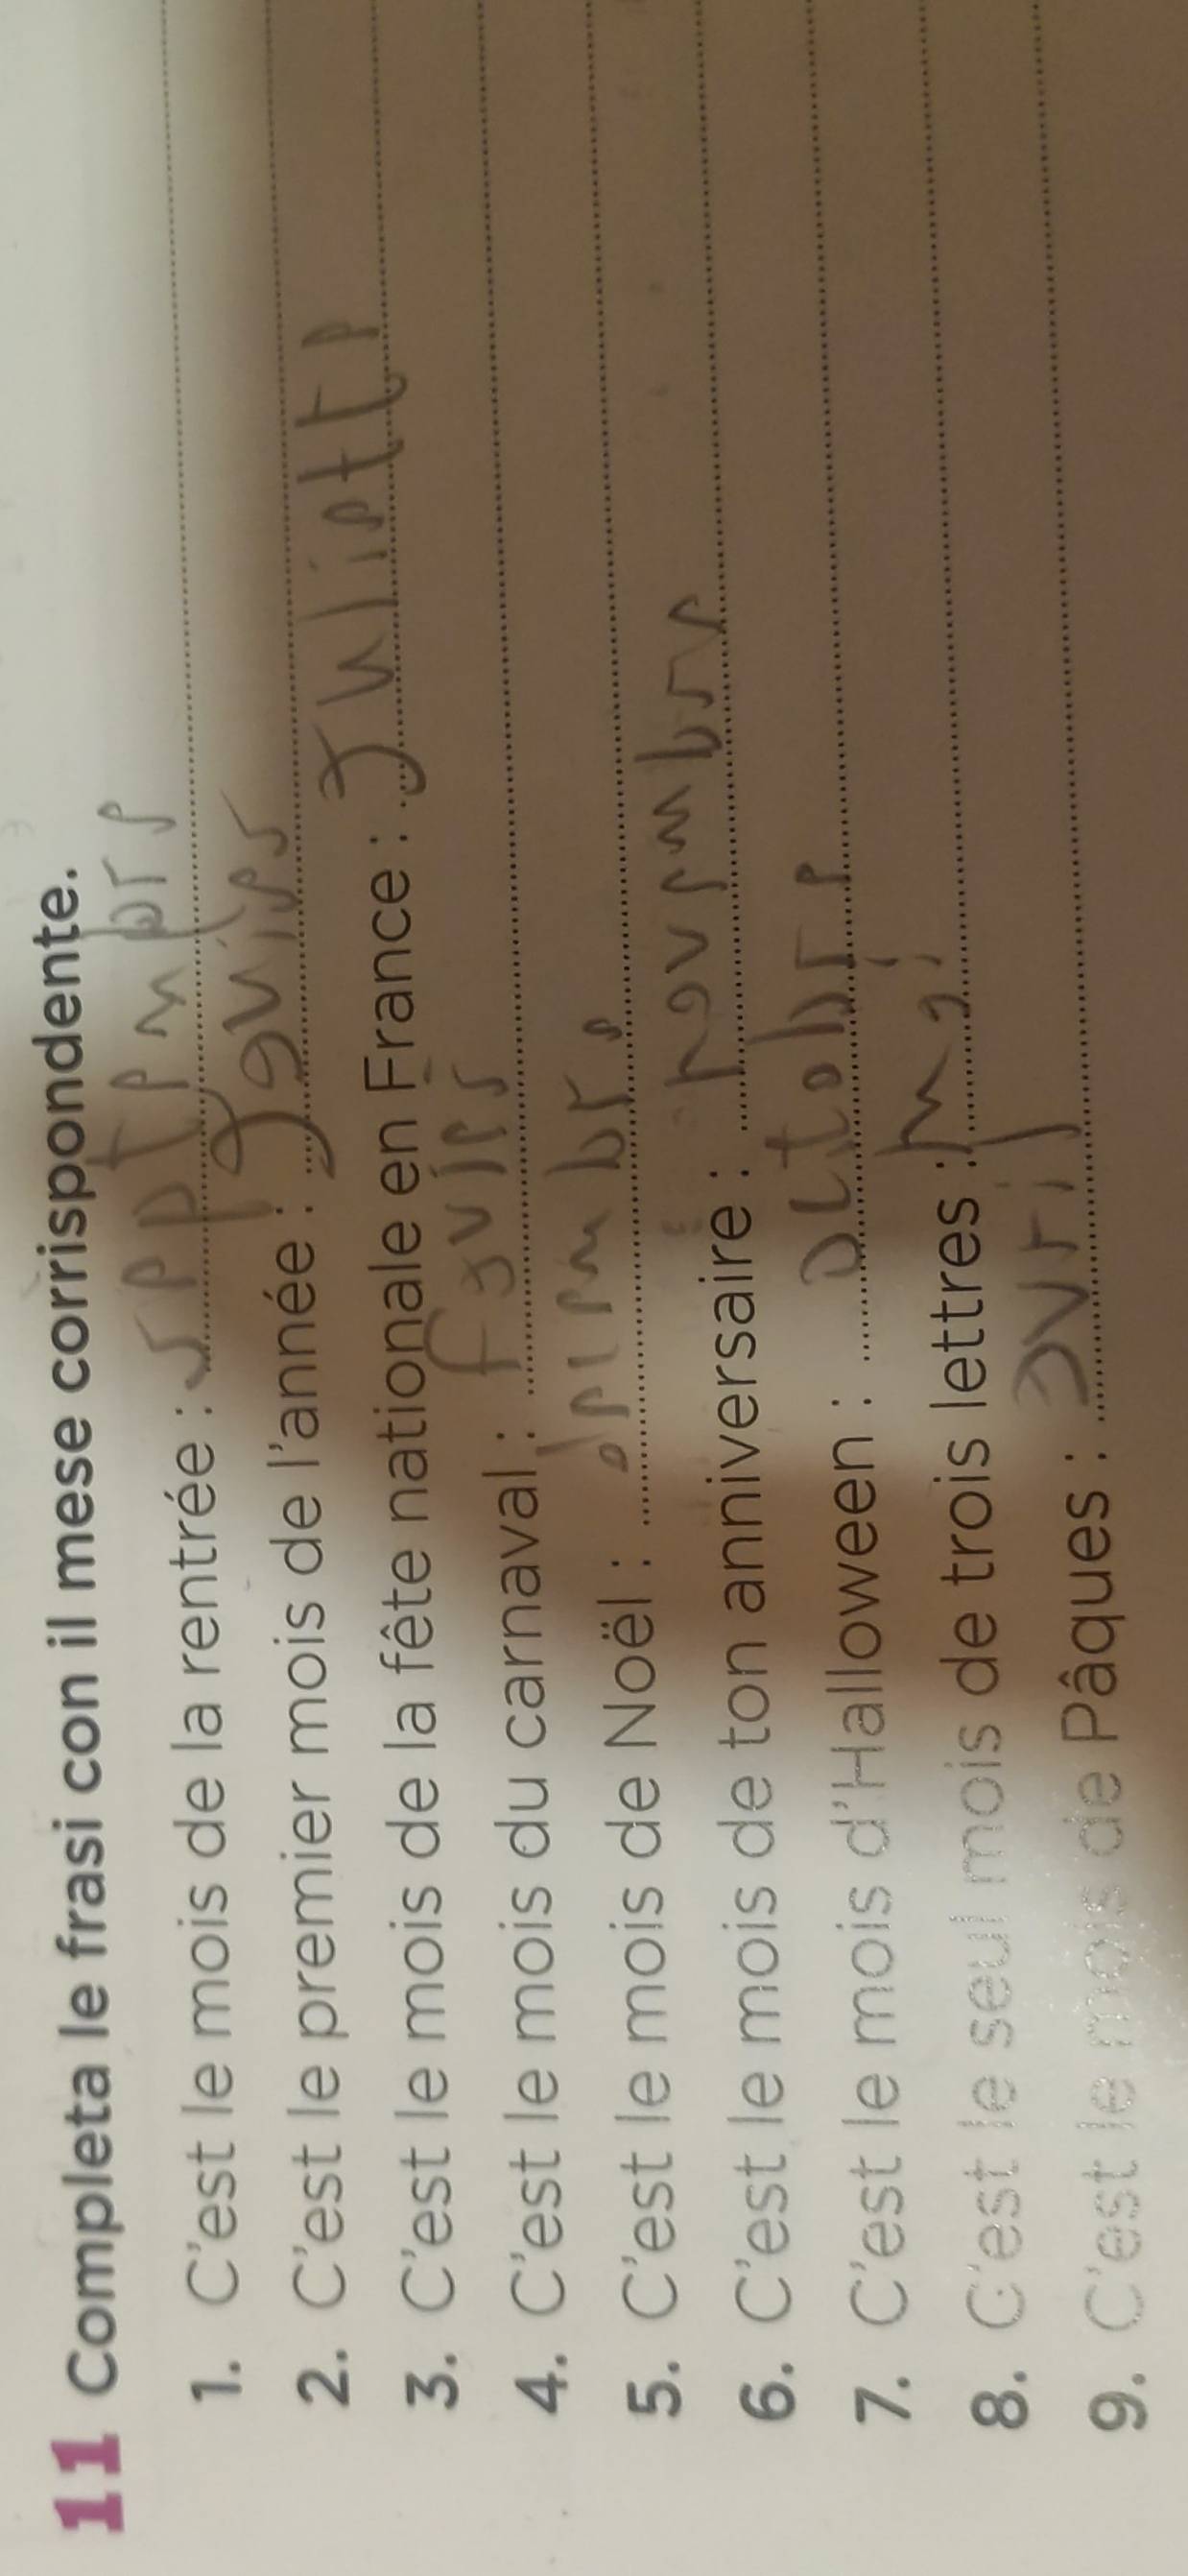 11 Completa le frasi con il mese corrispondente.
1. C'est le mois de la rentrée : septembre
2. C'est le premier mois de l'année :
3. C'est le mois de la fête nationale en France : Juliette
4. C'est le mois du carnaval :
5. C'est le mois de Noël :
6. C'est le mois de ton anniversaire :
7. C'est le mois d'Halloween : octobre
8. C'est le seul mois de trois lettres : mai
9. C'est le mois de Pâques :